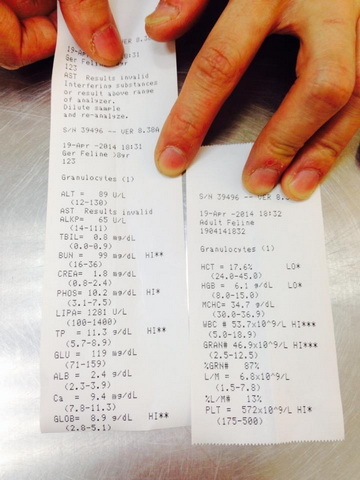 VER 8.38
19-Apr 18:31
Ger Feline
123
AST Results invalid
Interfering substances
or result above range
of analyzer.
Dilute sample
and re-analyze.
S/N 39496 -- VER 8.38A
19-Apr -2014 18:31
Ger Feline >8wr
123
Granulocytes (1)
ALT = 89 U/L
(12-130)
AST Results invalid
ALKP= 65 U/L
(14-111)
TBIL= 0.8 mg/dL
(0.0-0.9)
BUN = 99 mg/dL HI**
(16-36)
CREA= 1.8 mg/dL
(0.8-2.4)
PHOS= 10.2 mg/dL HI*
(3.1-7.5)
LIPA= 1281 U/L
(100-1400)
TP = 11.3 g/dL HI**
(5.7-8.9)
GLU = 119 mg/dL
(71-159)
ALB = 2.4 g/dL
(2.3-3.9)
Ca = 9.4 mg/dL
(7.8-11.3)
GLOB= 8.9 g/dL HI**
(2.8-5.1)
S/N 39496 -- VER 8.
19-Apr -2014 18:32
Adult Feline
1904141832
Granulocytes (1)
HCT = 17.6% LO*
(24.0-45.0)
HGB = 6.1 g/dL LO*
(8.0-15.0)
MCHC= 34.7 g/dL
(30.0-36.9)
WBC # 53.7x10^9/L HI***
(5.0-18.9)
GRAN# 46.9x10^9/L HI***
(2.5-12.5)
%GRN= 87%
L/M = 6.8x10^9/L
(1.5-7.8)
%L/M# 13%
PLT = 572x10^9/L HI*
(175-500)